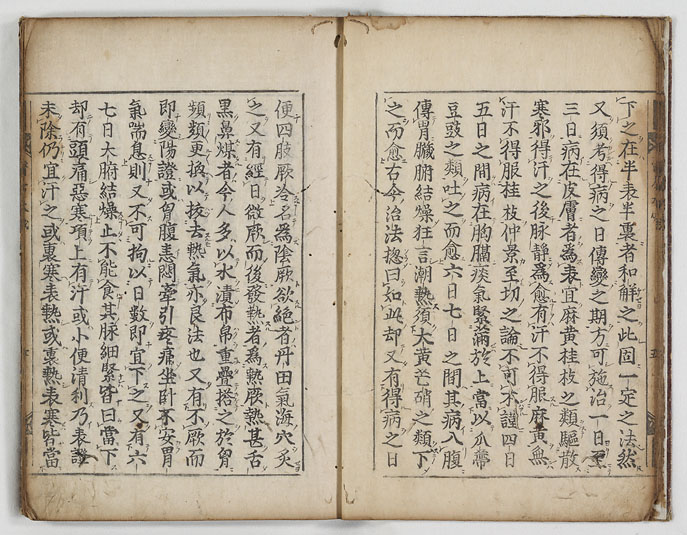 下之在半表半裏者和解之此固一定之法然
又須考得病之日傳變之期方可施治一日至
三日病在皮膚者為表宜麻黄桂枝之類驅散
寒邪得汗之後脉靜為愈有汗不得服麻黄無
汗不得服桂枝仲景至切之論不可不謹四日
五日之間病在胸膈痰氣緊滿於上當以瓜蔕
豆豉之類吐之而愈六日七日之間其病入腹
傳胃臓腑結燥狂言潮熱須大黄芒硝之類下
之而愈古今治法捴曰如此却又有得病之日
便四肢厥冷名為陰厥欲絶者丹田氣海穴炙
之又有經日微厥而後發熱者為熱厥熱甚舌
黒鼻煤者今人多以水漬布帛重疊搭之於胷
頻類更換以拔去熱氣亦良法也又有不厥而
即變陽證或胷腹恚悶牽引疼痛坐卧不安胃
氣喘息則又不可拘以日數即宜下之又有六
七日大腑結燥止不能食其脉細緊皆曰當下
却有頭痛惡寒項上有汗或小便清利乃表證
未除仍宜汗之或裏寒表熱或裏熱表寒皆當